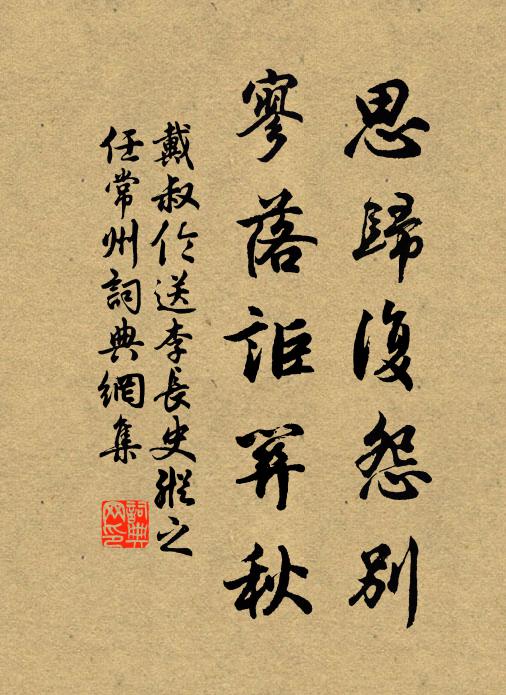 思歸復怨別
寥落詎關秋
戴叔倫送李長史縱之
任常州詞典網集
詞典
网印